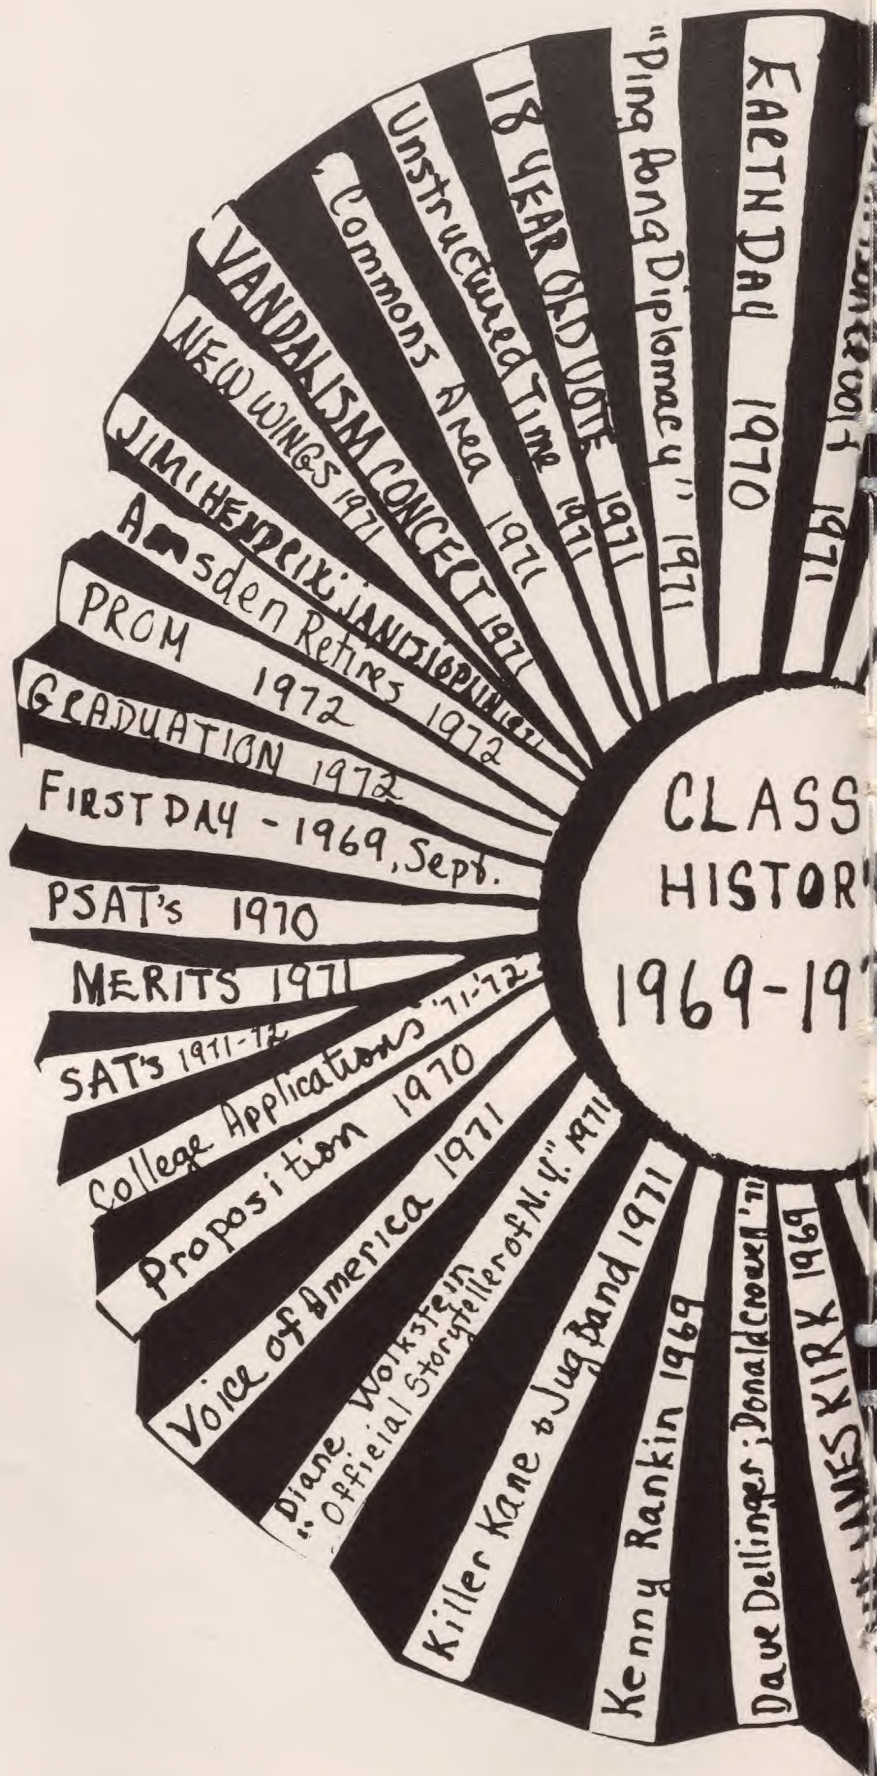 CLASS
HISTOR
1969-19
EARTH DAY 1970
"Ping Pong Diplomacy" 1971
18 YEAR OLD VOTE 1971
Unstructured Time 1971
Commons Area 1971
VANDALISM CONCERT 1971
NEW WINGS 1971
JIMI HENDRIX; JANIS JOPLIN 1971
Amsden Retires 1972
PROM 1972
GRADUATION 1972
FIRST DAY - 1969, Sept.
PSAT's 1970
MERITS 1971
SAT's 1971-72
College Applications '71-'72
Proposition 1970
Voice of America 1971
Diane Wolkstein
"Official Storyteller of N.Y." 1971
Killer Kane & Jug Band 1971
Kenny Rankin 1969
Dave Dellinger; Donald Craven '71
JAMES KIRK 1969
1971